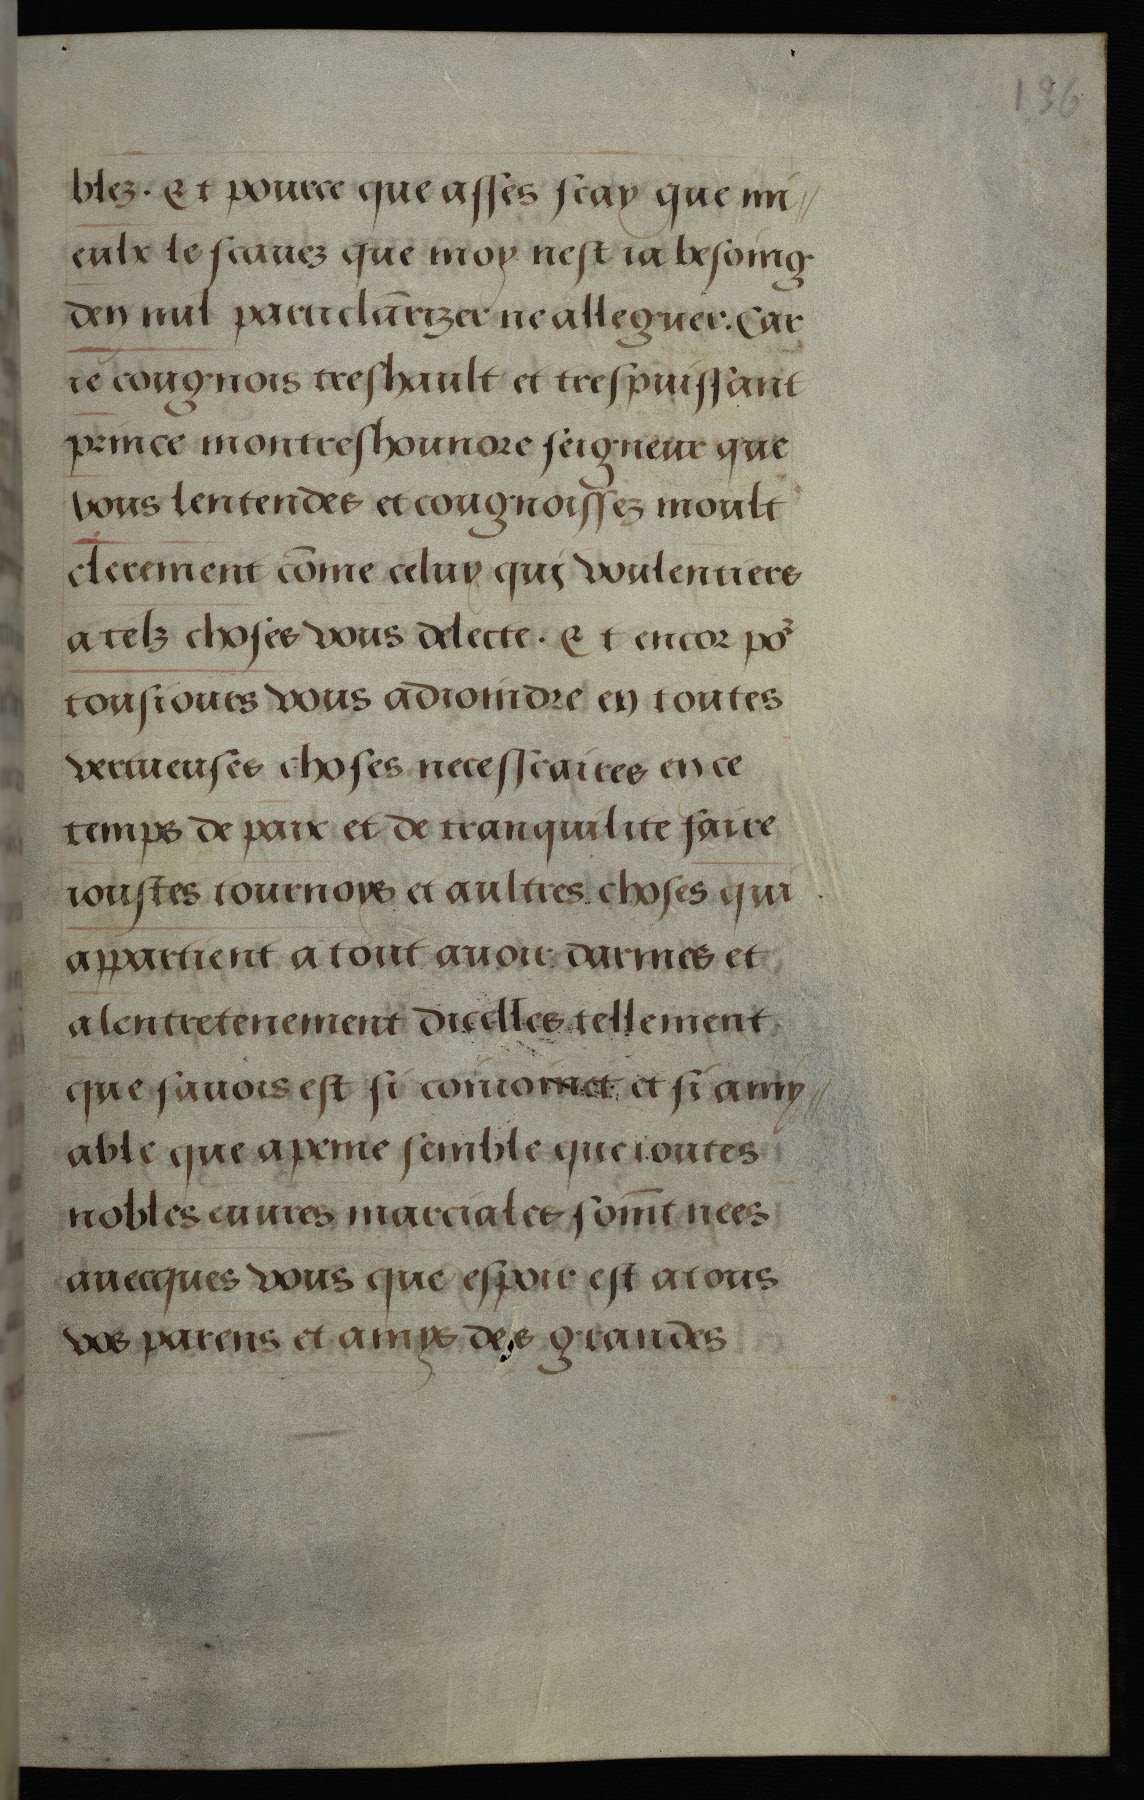 196
blez. Et pource que asses scay que mi//
eulx le scauez que moy nest ia besoing
den nul particlārizer ne alleguer. Car
ie cougnois treshault et trespuissant
prince montreshounore seigneur que
vous lentendes et cougnoissez moult
clerement cōme celuy qui voulentiers
a telz choses vous delecte. Et encor po᷑
tousiours vous adioindre en toutes
vertueuses choses necesscaires en ce
temps de paix et de tranquilite faire
ioustes tournoys et aultres choses qui
appartient a tout auoir darmes et
alentretenement dicelles tellement
que sauois est si conioinct et si amy//
able que apeine semble que toutes
nobles euures marciales som̄t nees
auecques vous que espoir est a tous
vos parens et amys des grandes